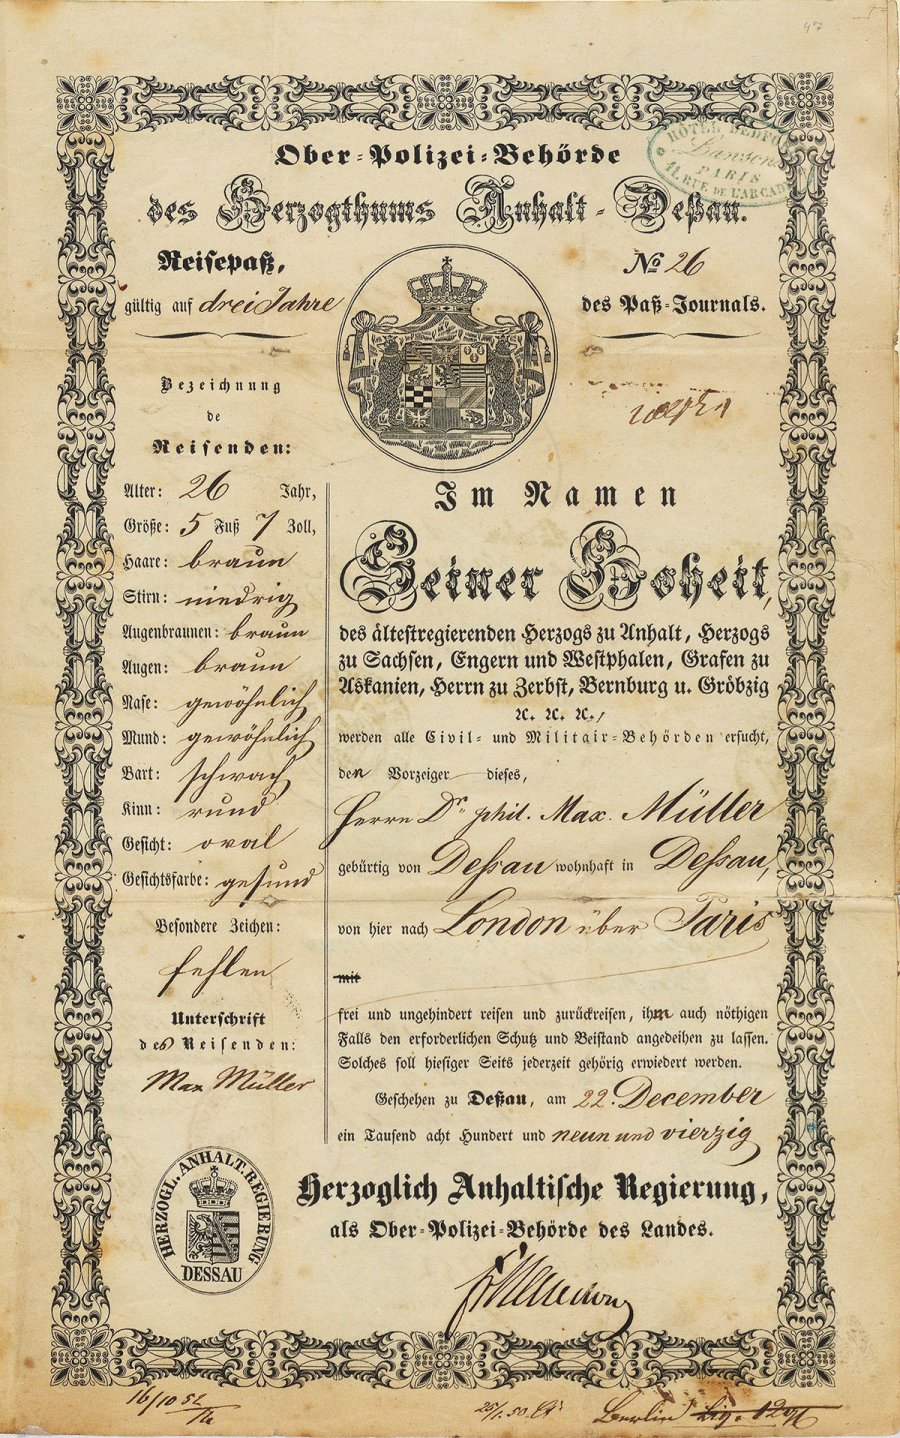 47
HÔTEL BEDFORD
PARIS
RUE DE L'ARCADE
Ober-Polizei-Behörde
des Herzogthums Anhalt-Deßau.
Reisepaß,
gültig auf drei Jahre
No 26
des Paß-Journals.
Bezeichnung
de
Reisenden:
Alter: 26 Jahr,
Größe: 5 Fuß 7 Zoll,
Haare: braun
Stirn: niedrig
Augenbraunen: braun
Augen: braun
Nase: gewöhnlich
Mund: gewöhnlich
Bart: schwach
Kinn: rund
Gesicht: oval
Gesichtsfarbe: gesund
Besondere Zeichen:
fehlen
Unterschrift
des Reisenden:
Max Müller
HERZOGL. ANHALT. REGIERUNG
DESSAU
Im Namen
Seiner Hoheit,
des ältestregierenden Herzogs zu Anhalt, Herzogs
zu Sachsen, Engern und Westphalen, Grafen zu
Askanien, Herrn zu Zerbst, Bernburg u. Gröbzig
ꝛc. ꝛc. ꝛc.,
werden alle Civil- und Militair-Behörden ersucht,
den Vorzeiger dieses,
Herrn Dr phil. Max Müller
gebürtig von Deßau wohnhaft in Deßau,
von hier nach London über Paris
mit
frei und ungehindert reisen und zurückreisen, ihm auch nöthigen
Falls den erforderlichen Schutz und Beistand angedeihen zu lassen.
Solches soll hiesiger Seits jederzeit gehörig erwiedert werden.
Geschehen zu Deßau, am 22. December
ein Tausend acht Hundert und neun und vierzig
Herzoglich Anhaltische Regierung,
als Ober-Polizei-Behörde des Landes.
16/10 52
25/1.50
Berlin